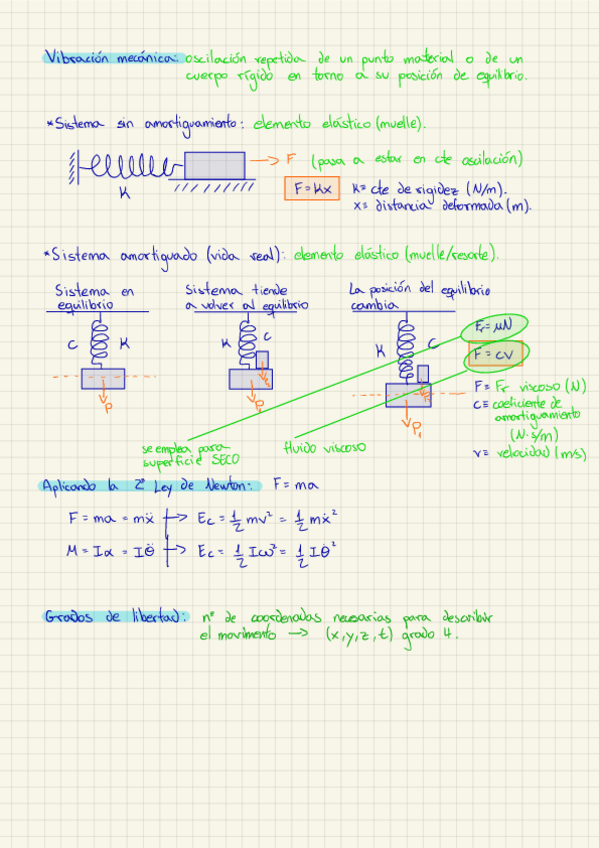 Vibración mecánica: oscilación repetida de un punto material o de un
cuerpo rígido en torno a su posición de equilibrio.
*Sistema sin amortiguamiento: elemento elástico (muelle).
F (pasa a estar en cte oscilación)
K
F=Kx
K= cte de rigidez (N/m).
x= distancia deformada (m).
*Sistema amortiguado (vida real): elemento elástico (muelle/resorte).
Sistema en
equilibrio
Sistema tiende
a volver al equilibrio
La posición del equilibrio
cambia
C K
K C
K C
P
P₁
P₁
Fr=μN
F=cv
F= Fr viscoso (N)
C≡ coeficiente de
amortiguamiento
(N·s/m)
v≡ velocidad (m/s)
se emplea para
superficie SECO
fluido viscoso
Aplicando la 2ª Ley de Newton: F=ma
F=ma=mẍ → Ec = 1/2 mv² = 1/2 mẋ²
M=Iα=Iθ̈ → Ec = 1/2 Iω² = 1/2 Iθ̇²
Grados de libertad: nº de coordenadas necesarias para describir
el movimiento → (x,y,z,t) grado 4.